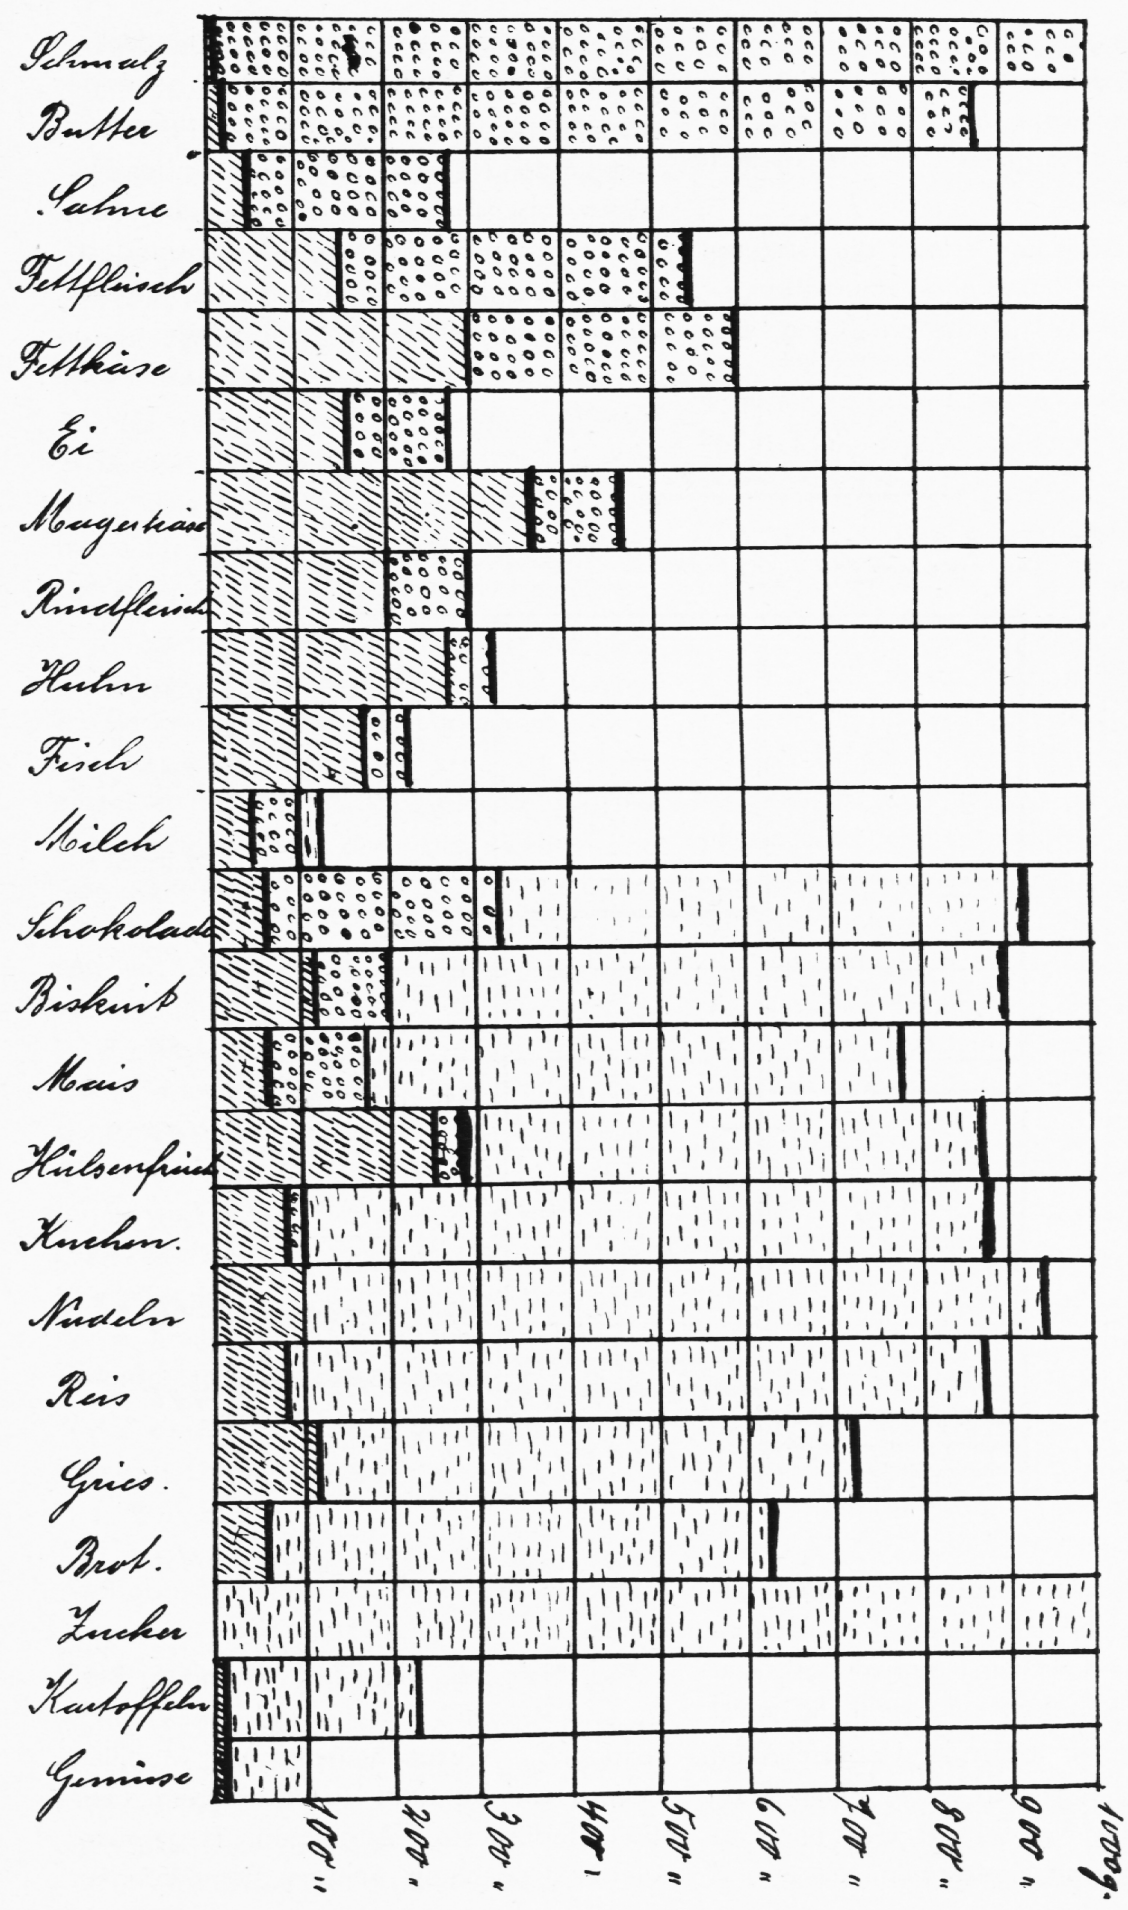 Schmalz
Butter
Sahne
Fettfleisch
Fettkäse
Ei
Magerkäse
Rindfleisch
Huhn
Fisch
Milch
Schokolade
Biskuit
Mais
Hülsenfrücht
Kuchen.
Nudeln
Reis
Gries.
Brot.
Zucker
Kartoffeln
Gemüse
100 "
200 "
300 "
400 "
500 "
600 "
700 "
800 "
900 "
1000g.